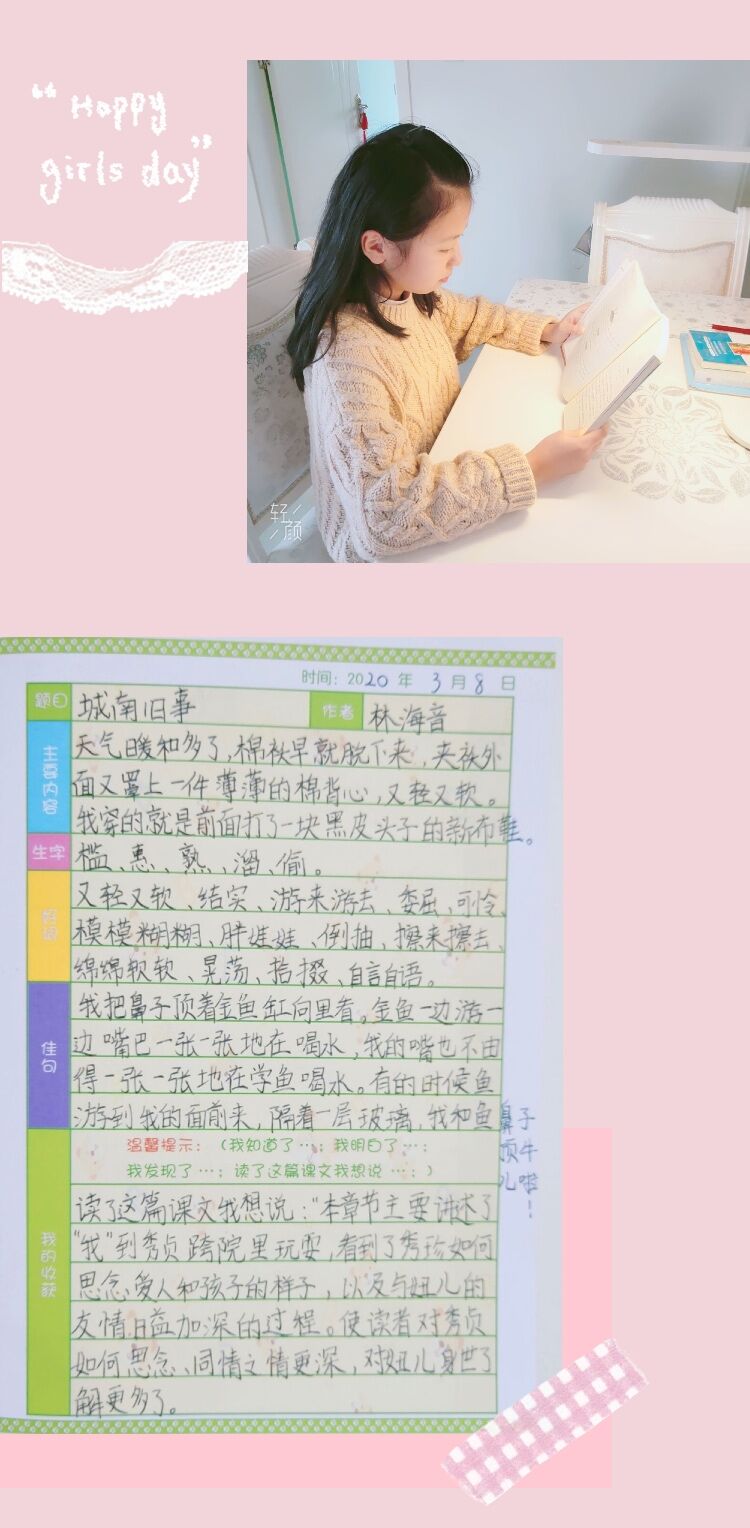 “Happy
girls day”
轻颜
时间：2020 年 3 月 8 日
题目 城南旧事 作者 林海音
主要内容
天气暖和多了，棉袄早就脱下来，夹袄外
面又罩上一件薄薄的棉背心，又轻又软。
我穿的就是前面打了一块黑皮头子的新布鞋。
生字 槛、惠、熟、溜、偷。
好词
又轻又软、结实、游来游去、委屈、可怜、
模模糊糊、胖娃娃、倒抽、擦来擦去、
绵绵软软、晃荡、拾掇、自言自语。
佳句
我把鼻子顶着金鱼缸向里看。金鱼一边游一
边嘴巴一张一张地在喝水，我的嘴也不由
得一张一张地在学鱼喝水。有的时候鱼
游到我的面前来，隔着一层玻璃，我和鱼鼻子
顶牛
儿啦
！
温馨提示：（我知道了…；我明白了…；
我发现了…；读了这篇课文我想说…；）
我的收获
读了这篇课文我想说：“本章节主要讲述了
“我”到秀贞跨院里玩耍，看到了秀珍如何
思念爱人和孩子的样子，以及与妞儿的
友情日益加深的过程。使读者对秀贞
如何思念、同情之情更深，对妞儿身世了
解更多了。